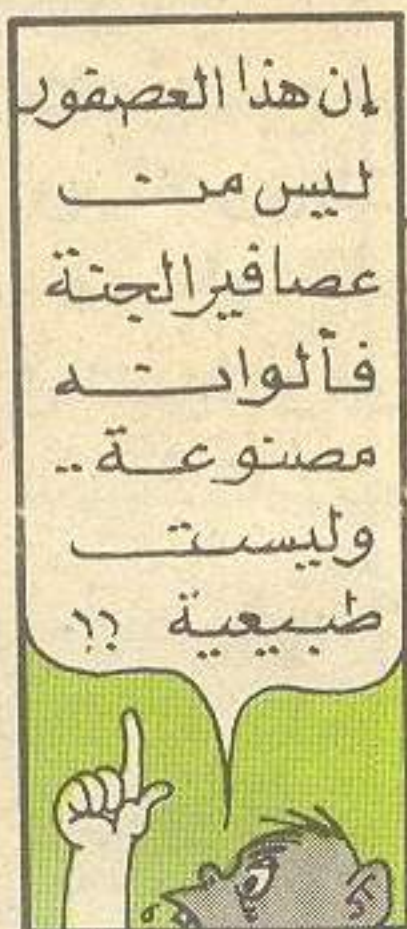 إن هذا العصفور
ليس من
عصافير الجنة
فألوانه
مصنوعة ..
وليست
طبيعية ؟!